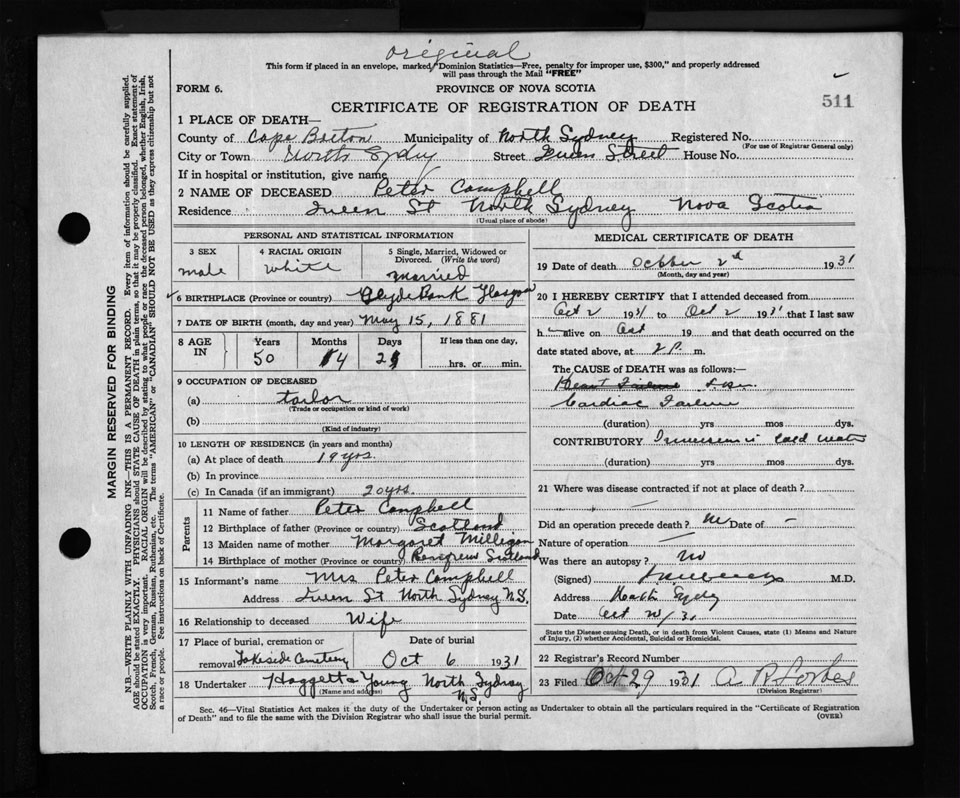 original
This form if placed in an envelope, marked "Dominion Statistics—Free, penalty for improper use, $300," and properly addressed
will pass through the Mail "FREE"
FORM 6.
PROVINCE OF NOVA SCOTIA
511
CERTIFICATE OF REGISTRATION OF DEATH
1 PLACE OF DEATH—
County of Cape Breton Municipality of North Sydney Registered No.
(For use of Registrar General only)
City or Town North Sydney Street Queen Street House No.
If in hospital or institution, give name
2 NAME OF DECEASED Peter Campbell
Residence Queen St North Sydney Nova Scotia
(Usual place of abode)
PERSONAL AND STATISTICAL INFORMATION
3 SEX male
4 RACIAL ORIGIN white
5 Single, Married, Widowed or Divorced. (Write the word) married
6 BIRTHPLACE (Province or country) ClydeBank Glasgow
7 DATE OF BIRTH (month, day and year) May 15, 1881
8 AGE IN Years 50 Months 4 Days 2 If less than one day, hrs. or min.
9 OCCUPATION OF DECEASED
(a) tailor
(Trade or occupation or kind of work)
(b)
(Kind of industry)
10 LENGTH OF RESIDENCE (in years and months)
(a) At place of death 19 yrs.
(b) In province
(c) In Canada (if an immigrant) 20 yrs.
Parents
11 Name of father Peter Campbell
12 Birthplace of father (Province or country) Scotland
13 Maiden name of mother Margaret Milligan
14 Birthplace of mother (Province or country) Renfrew Scotland
15 Informant's name Mrs Peter Campbell
Address Queen St North Sydney N.S.
16 Relationship to deceased Wife
17 Place of burial, cremation or removal Lakeside Cemetery
Date of burial Oct 6 1931
18 Undertaker Haggett & Young North Sydney N.S.
(Name and address)
MEDICAL CERTIFICATE OF DEATH
19 Date of death October 2nd 1931
(Month, day and year)
20 I HEREBY CERTIFY that I attended deceased from
Oct 2 1931 to Oct 2 1931 that I last saw
h alive on Oct 19 and that death occurred on the
date stated above, at 2 P. m.
The CAUSE OF DEATH was as follows:—
Heart Failure
Cardiac Failure
(duration) yrs mos dys.
CONTRIBUTORY Immersion in cold water
(duration) yrs mos dys.
21 Where was disease contracted if not at place of death?
Did an operation precede death? no Date of —
Nature of operation —
Was there an autopsy? no
(Signed) M.D.
Address North Sydney
Date Oct
State the Disease causing Death, or in death from Violent Causes, state (1) Means and Nature of Injury, (2) whether Accidental, Suicidal or Homicidal.
22 Registrar's Record Number
23 Filed Oct 29 1931 A R Forbes
(Division Registrar)
Sec. 46—Vital Statistics Act makes it the duty of the Undertaker or person acting as Undertaker to obtain all the particulars required in the "Certificate of Registration
of Death" and to file the same with the Division Registrar who shall issue the burial permit.
(OVER)
MARGIN RESERVED FOR BINDING
N.B.—WRITE PLAINLY WITH UNFADING INK—THIS IS A PERMANENT RECORD. Every item of information should be carefully supplied.
AGE should be stated EXACTLY. PHYSICIANS should STATE CAUSE OF DEATH in plain terms, so that it may be properly classified. Exact statement of
OCCUPATION is very important. RACIAL ORIGIN will be described by stating to what people or race the deceased person belonged, whether English, Irish,
Scotch, French, German, Russian, Ruthenian, etc. The terms "AMERICAN" or "CANADIAN" SHOULD NOT BE USED as they express citizenship but not
a race or people. See instructions on back of Certificate.